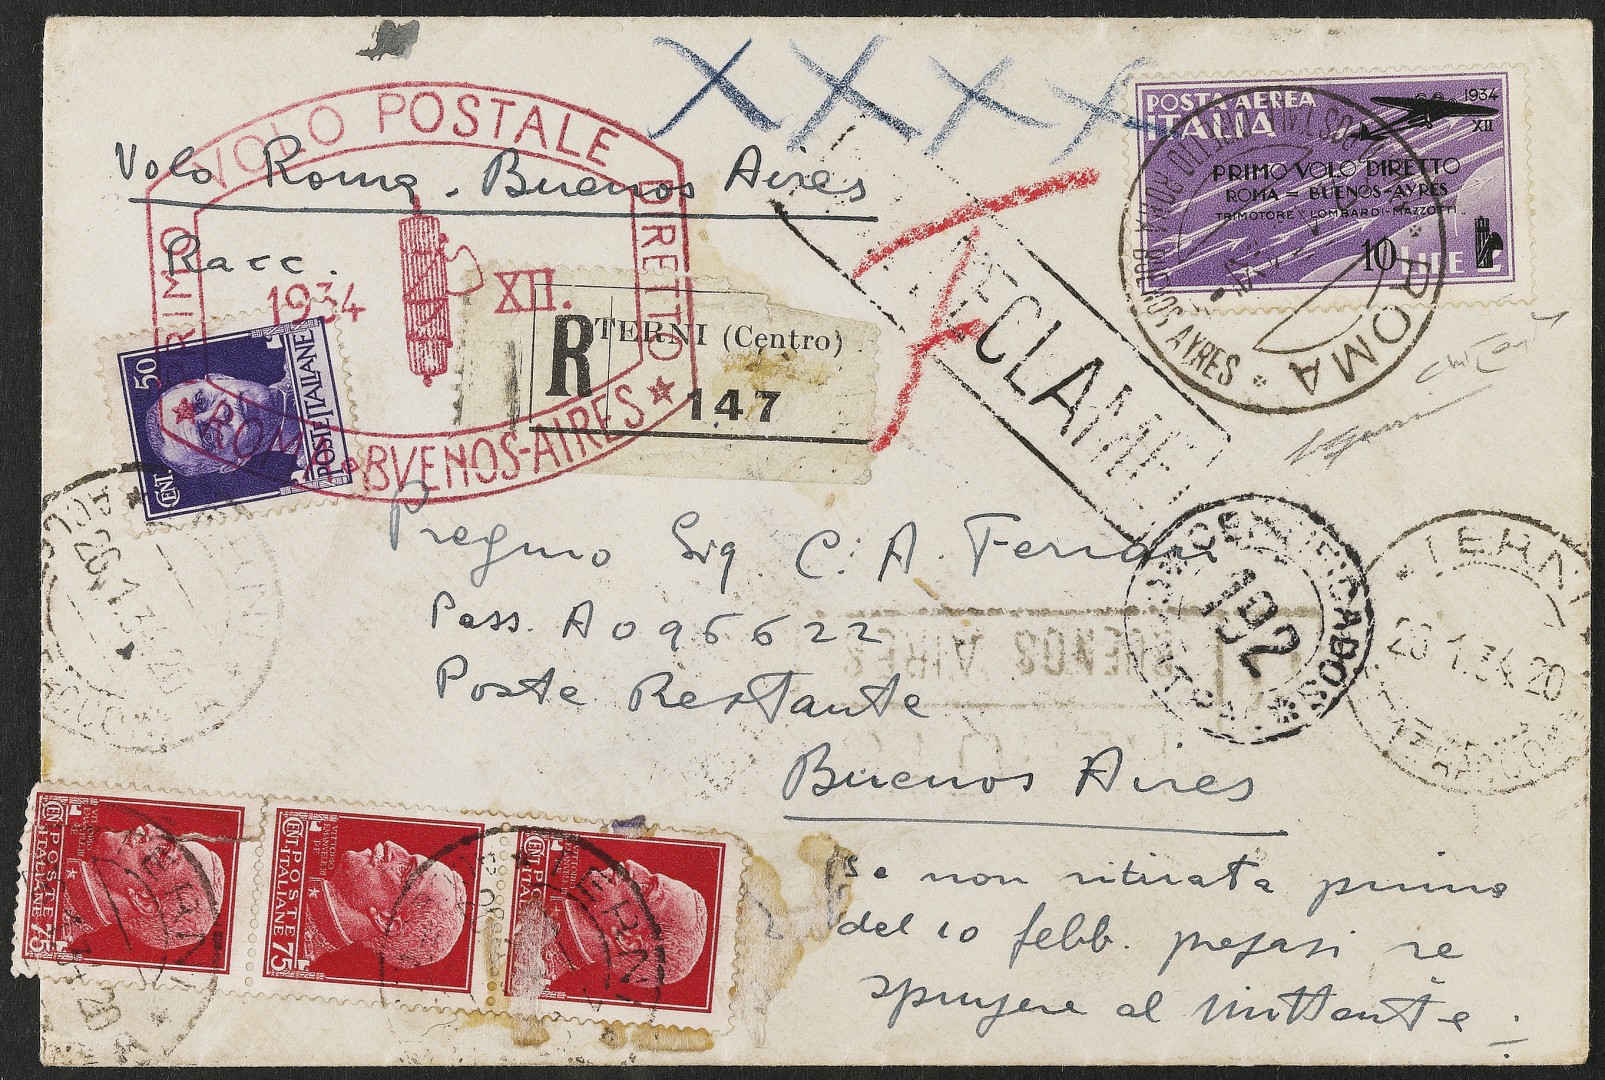 XXXX
PRIMO VOLO POSTALE DIRETTO
Volo Roma - Buenos Aires
Racc.
1934 XII.
ROMA BVENOS-AIRES
R
TERNI (Centro)
147
POSTA AEREA
ITALIA
1934
XII
PRIMO VOLO DIRETTO
ROMA = BUENOS-AYRES
TRIMOTORE "LOMBARDI-MAZZOTTI"
10 LIRE
ROMA
BUENOS AYRES
50
CENT.
POSTE ITALIANE
Pregmo Sig C. A. Ferrari
Pass. A096622
Poste Restante
Buenos Aires
BUENOS AIRES
CERTIFICADOS
192
TERNI
26.1.34.20
(Se non ritirata prima
del 10 febb. pregasi re
spingere al mittente.
CENT. 75
POSTE ITALIANE
VITTORIO EMANUELE III RE
CENT. 75
POSTE ITALIANE
VITTORIO EMANUELE III RE
CENT.
POSTE ITALIANE
TERNI
TERNI